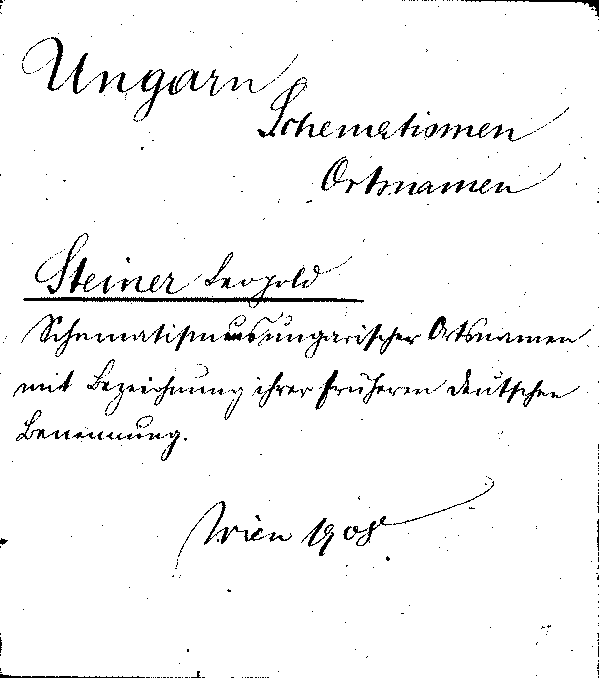 Ungarn
Schematismen
Ortsnamen
Steiner Leopold
Schematismus ungarischer Ortsnamen
mit Bezeichnung ihrer früheren deutschen
Benennung.
Wien 1908